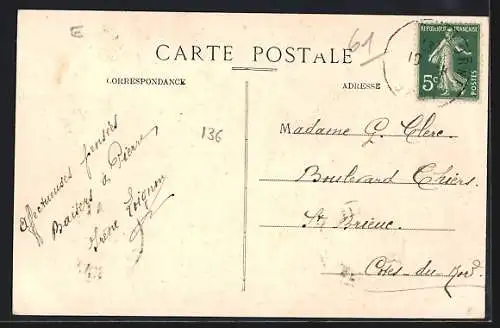 E
61
CARTE POSTALE
CORRESPONDANCE
ADRESSE
REPUBLIQUE FRANÇAISE
5c
POSTES
136
Affectueuses pensées
Baisers à Pierre
Irène
Madame G. Clerc.
Boulevard Thiers.
St Brieuc.
Côtes-du-Nord.